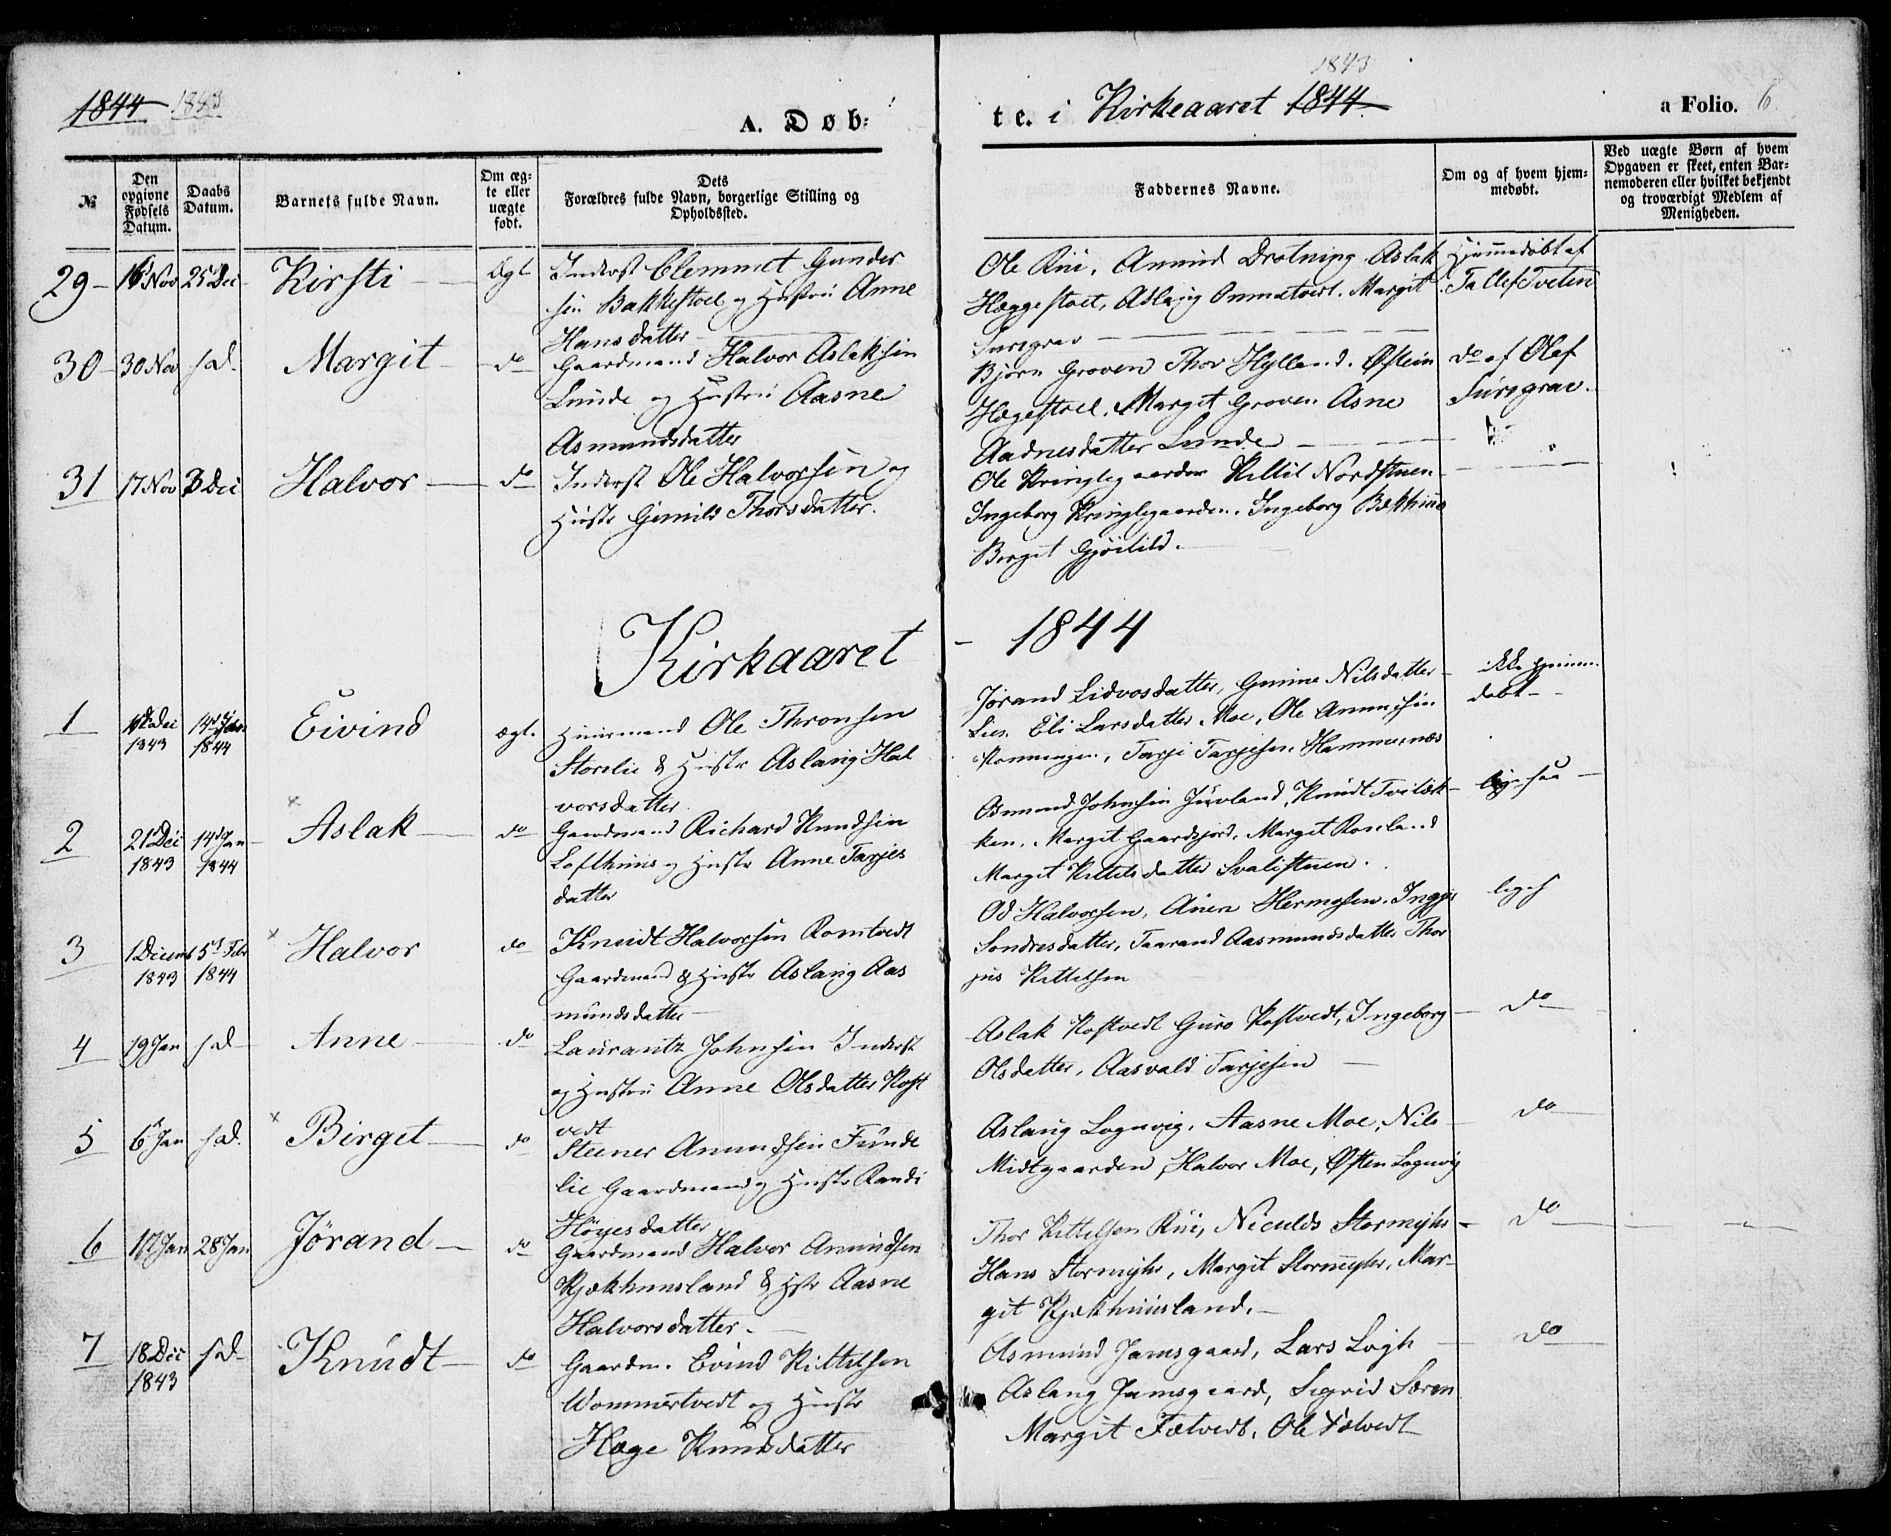 1844 1843
A. Døb:
1843
te. i Kirkeaaret 1844.
a Folio. 6
№
Den opgivne Fødsels Datum.
Daabs Datum.
Barnets fulde Navn.
Om ægte eller uægte født.
Dets Forældres fulde Navn, borgerlige Stilling og Opholdssted.
Faddernes Navne.
Om og af hvem hjemmedøbt.
Ved uægte Børn af hvem Opgaven er skeet, enten Barnemoderen eller hvilket bekjendt og troværdigt Medlem af Menigheden.
29 16 Nov 25 Dec Kirsti Ægt Inderst Clemmet Gunder
sen Bakkestoel og Hustru Anne
Hansdatter
Ole Rui, Anund Drotning Aslak
Heggestoel, Aslaug Ommetvedt. Margit
Jursgrav
Hjemmedøbt af
Tallef Tveten
30 30 Nov s.d. Margit do Gaardmand Halvor Aslaksen
Lunde og Hustru Aasne
Asmundsdatter
Bjørn Groven Thor Hylland. Østein
Hægestoel, Margit Groven Asne
Aadnesdatter Lunde
do af Olef
Jursgrav.
31 17 Nov 3 Dec Halvor do Inderst Ole Halvorsen og
Hustr Gunild Thorsdatter.
Ole Kringlegaarden Kittil Nordstuen
Ingeborg Kringlegaarden. Ingeborg Bækhuus
Berget Gjøilild.
Kirkaaret - 1844
1 Dec 1843 14 Jan 1844 Eivind ægt. Huusmand Ole Thronsen
Storelie & Hustr Aslaug Hal
vorsdatter.
Jørand Lidvorsdatter, Gunne Nilsdatter
Lien Eli Larsdatter Moe, Ole Anundsen
Tarje Tarjesen Hammernæs
ikke hjemme
døbt
2 21 Dec 1843 14 Jan 1844 Aslak do Gaardmand Richard Knudsen
Lofthuus og Hustr Anne Tarjes
datter
Osmund Johnsen Juvland, Knudt Tvilæk
ken, Margit Gaardsjord, Margit Roseland
Margit Kittelsdatter Svalestuen.
ligesaa
3 1 Decemb 1843 5t Febr 1844 Halvor do Knudt Halvorsen Romtvedt
Gaardmand & Hustr Aslaug Aas
mundsdatter
Od Halvorsen, Anen Hermosen. Ingjer
Sondresdatter, Taarand Aasmundsdatter Thor
jus Kittelsen
liges
4 19 Jan s.d. Anne do Laurantz Johnsen Inderst
og Hustru Anne Olsdatter Kost
vedt
Aslak Kostvedt Guro Kostvedt, Ingeborg
Olsdatter, Aasvald Tarjesen
do
5 6 Jan s.d. Birget do Steener Anundsen Funde
lie Gaardmand og Hustr Randi
Høyesdatter
Aslaug Lognvig, Aasne Moe, Nils
Midtgaarden, Halvor Moe, Østen Lognvig
do
6 17 Jan 28 Jan Jørand do Gaardmand Halvor Anundsen
Kjækhuusland & Hstr Aasne
Halvorsdatter.
Thor Kittelsen Rui, Niculds Stormyhr
Hans Stormyhr, Margit Stormyhr, Mar-
git Kjækhuusland.
do
7 18 Dec 1843 s.d. Knudt do Gaardm. Evind Kittelsen
Wommertvedt og Hustr
Hæge Knudsdatter
Asmund Jamsgaard, Lars Logh
Aslaug Jamsgaard, Sigrid Søren
Margit Fætvedt, Ole Fælvedt
do